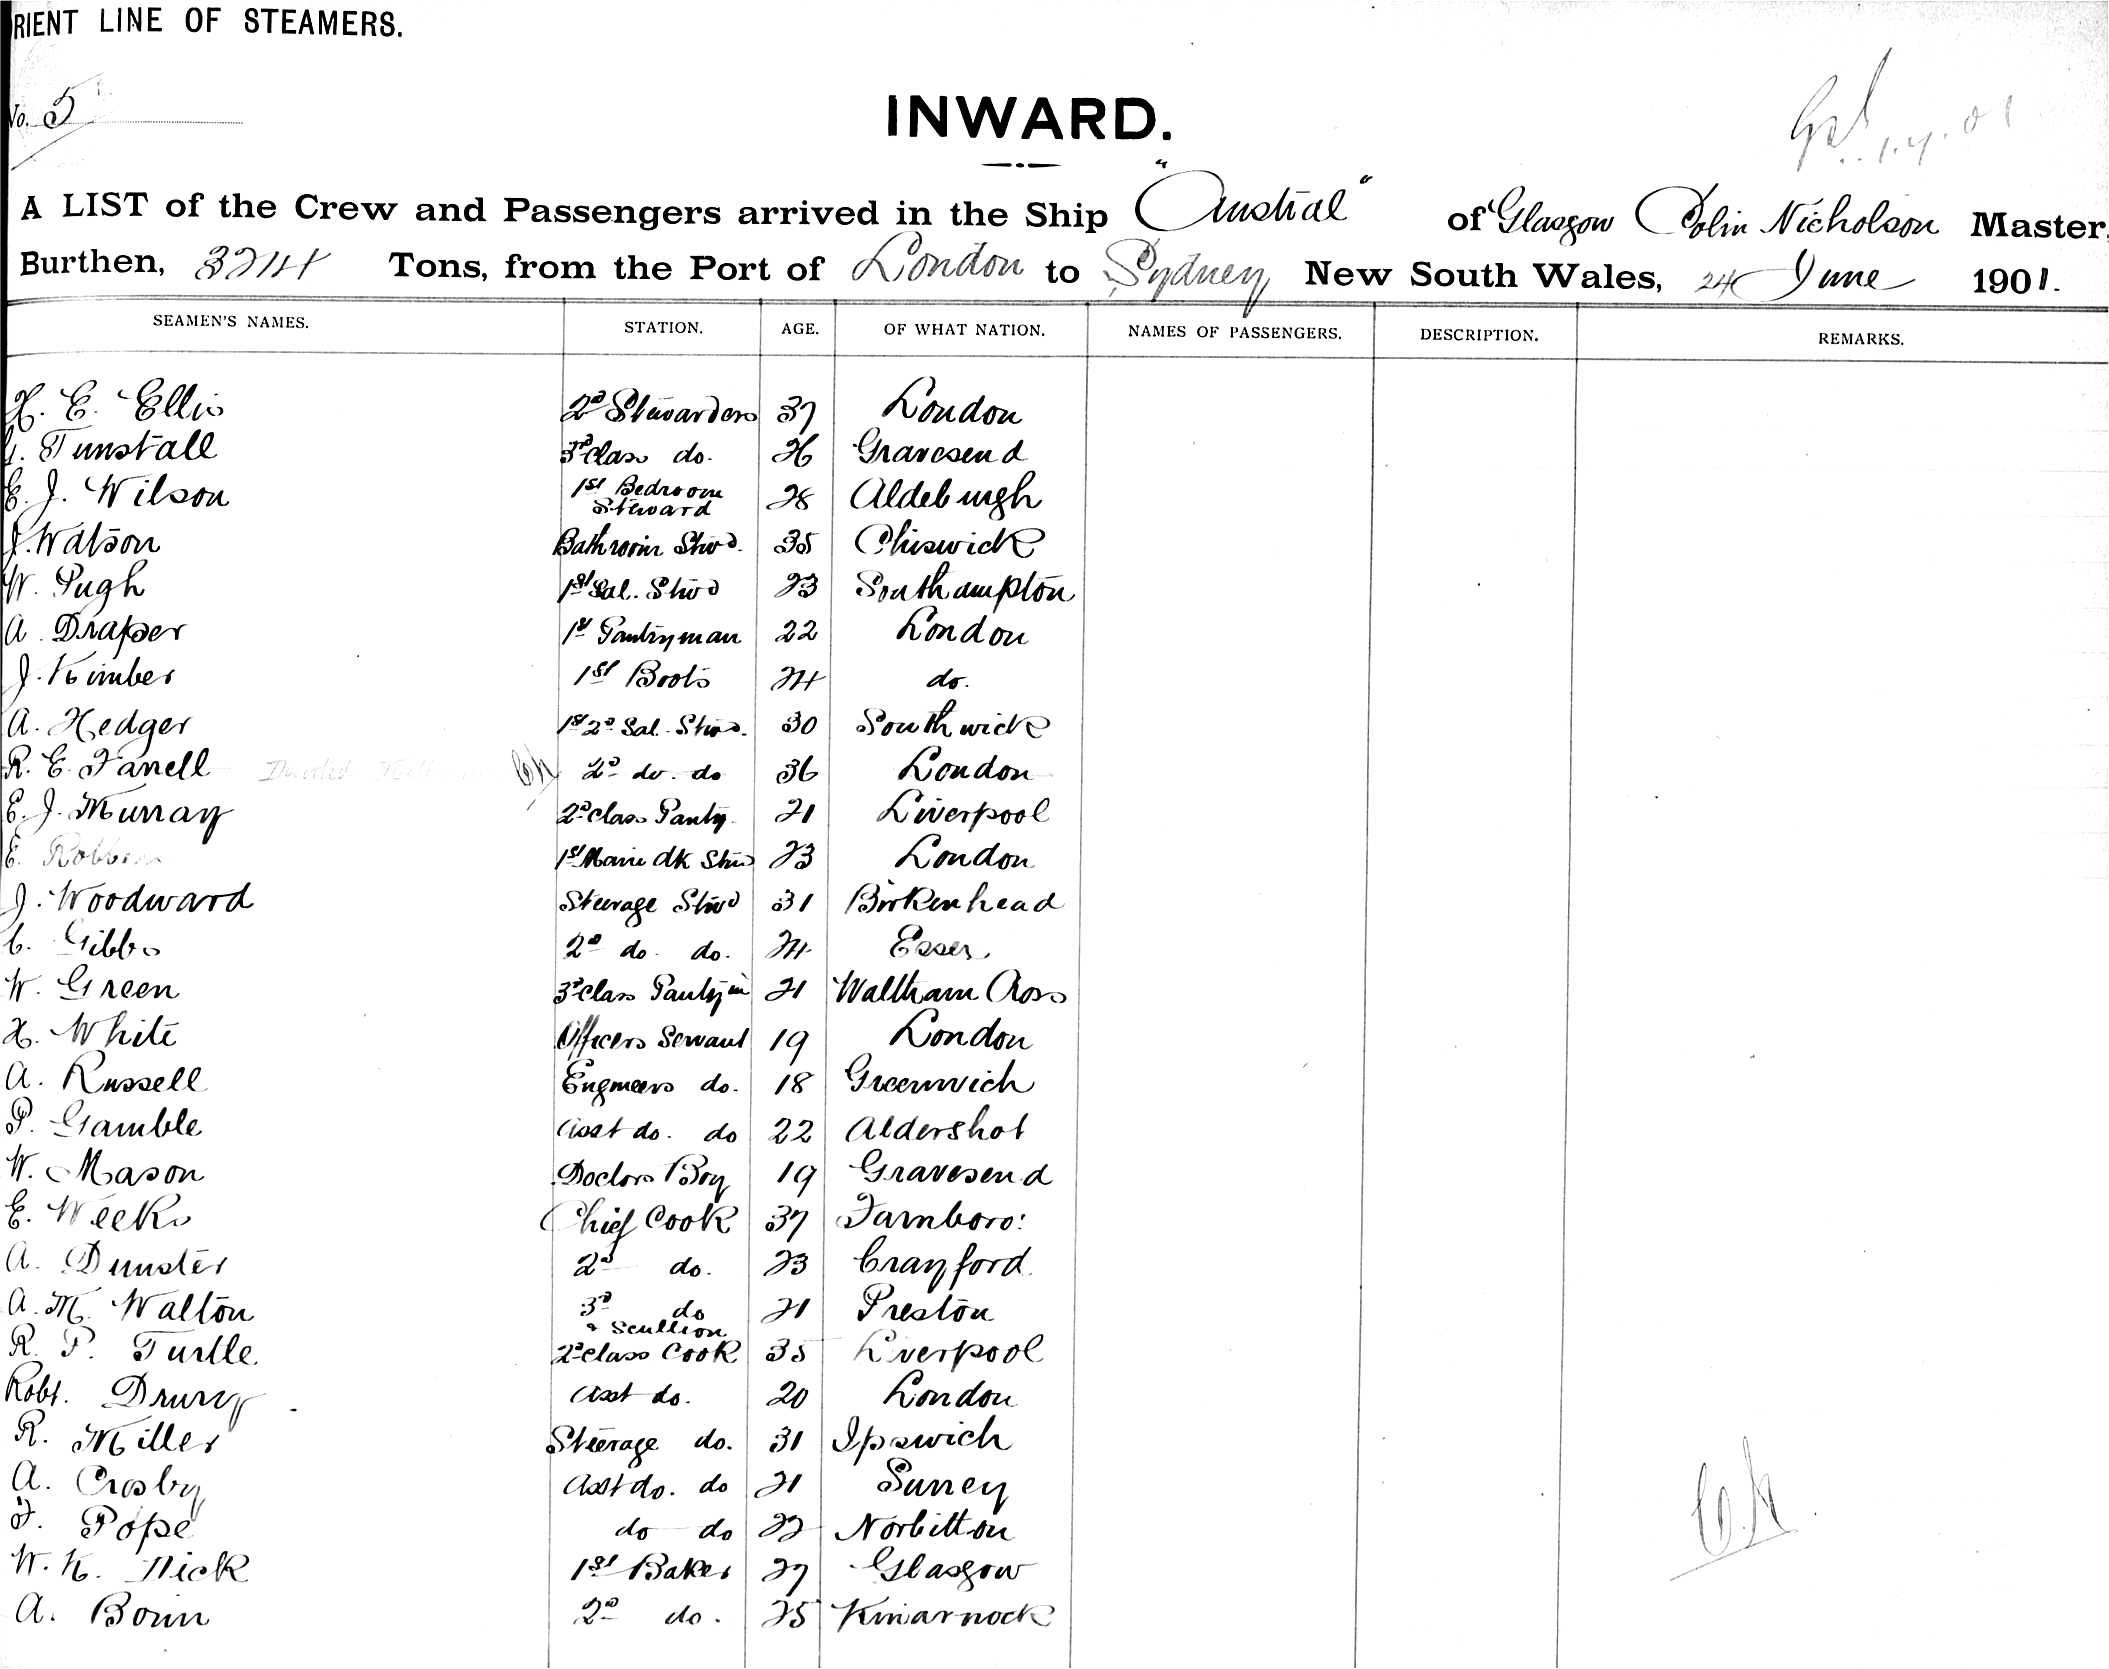 RIENT LINE OF STEAMERS.
No. 5
INWARD.
A LIST of the Crew and Passengers arrived in the Ship "Austral" of Glasgow Colin Nicholson Master,
Burthen, 3214 Tons, from the Port of London to Sydney New South Wales, 24 June 1901.
SEAMEN'S NAMES. STATION. AGE. OF WHAT NATION. NAMES OF PASSENGERS. DESCRIPTION. REMARKS.
H. E. Ellis 2d Stewardess 37 London
Tunstall 3d class do. 26 Gravesend
E. J. Wilson 1st Bedroom Steward 28 Aldeburgh
J. Watson Bathroom Stwd. 35 Chiswick
W. Pugh 1st Sal. Stwd 23 Southampton
A. Draper 1st Pantryman 22 London
J. Kimber 1st Boots 24 do.
A. Hedger 1st 2d Sal. Stwd. 30 Southwick
R. E. Farrell 2d do. do 36 London
E. J. Murray 2d class Pantry 21 Liverpool
E. 1st Main dk Stwd 23 London
J. Woodward Steerage Stwd 31 Birkenhead
C. Gibbs 2d do. do. 24 Essex
W. Green 3d class Pantrym 21 Waltham Cross
H. White Officers Servant 19 London
A. Russell Engineers do. 18 Greenwich
P. Gamble Asst do. do 22 Aldershot
W. Mason Doctors Boy 19 Gravesend
E. Weeks Chief Cook 37 Farnboro:
A. Dunster 2d do. 23 Crayford
A. M. Walton 3d do & Scullion 21 Preston
R. P. Turtle 2d class Cook 35 Liverpool
Robt. Drury Asst do. 20 London
R. Miller Steerage do. 31 Ipswich
A. Crosby Asst do. do 21 Surrey
F. Pope do do 22 Norbitton
W. K. Nick 1st Baker 27 Glasgow
A. 2d do. 25 Kmarnock